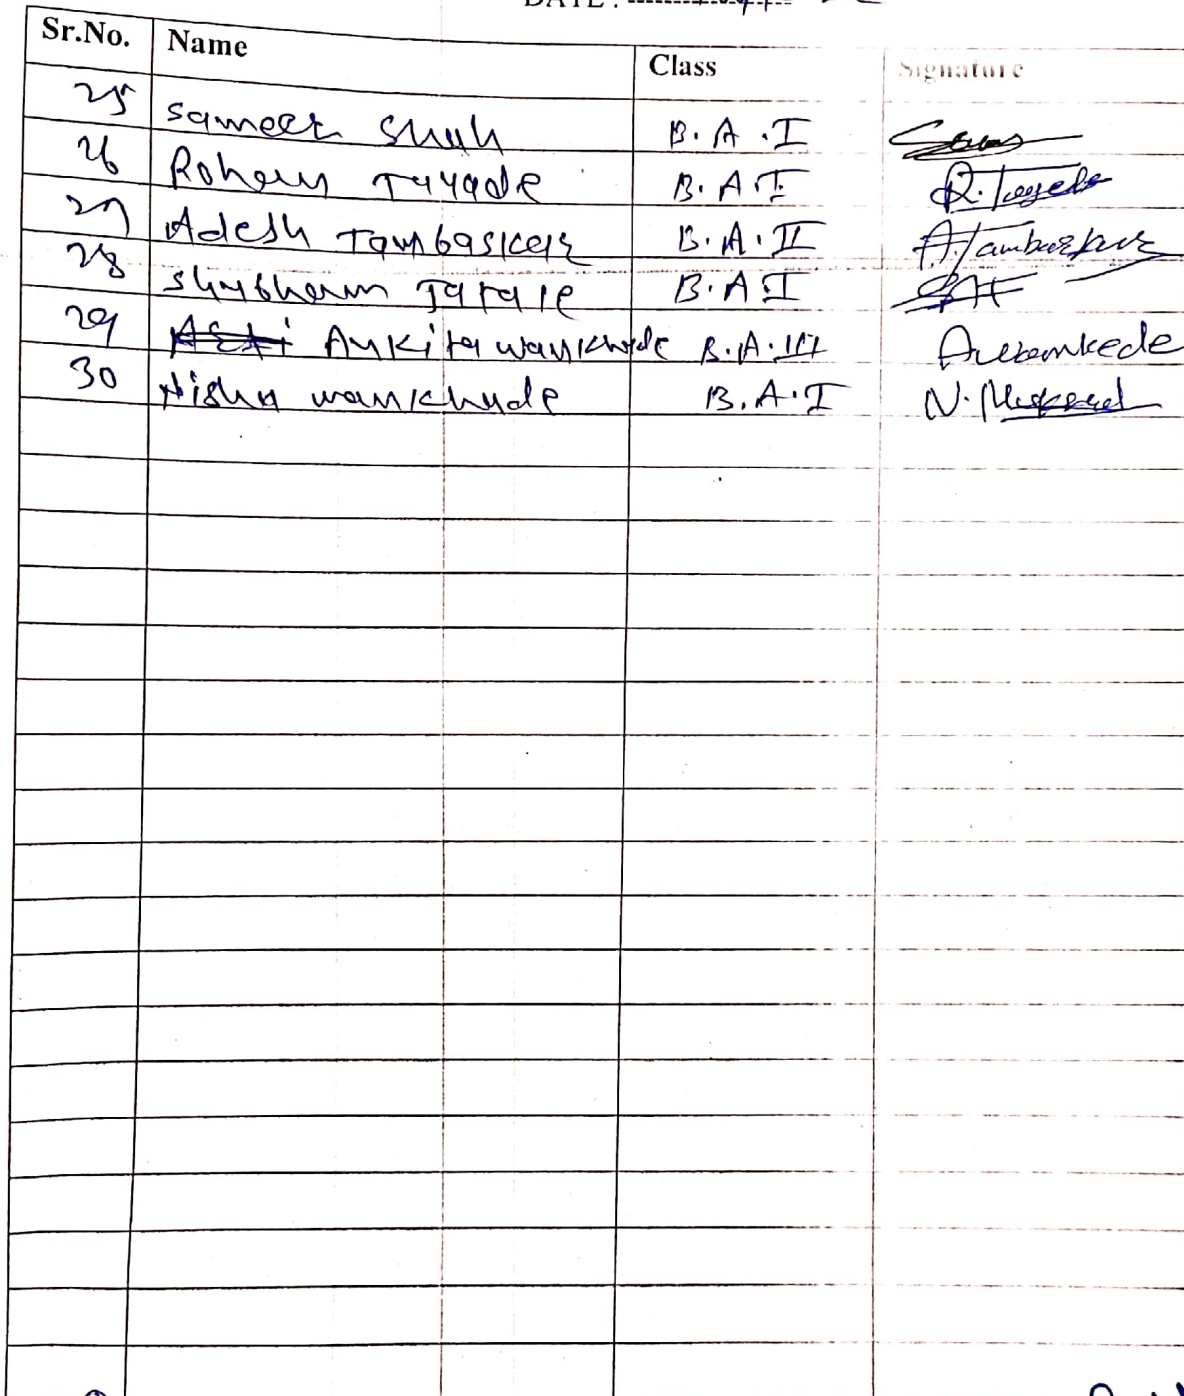 DATE :
Sr.No. Name Class Signature
25 sameer Shah B.A.I
26 Rohan Tayade B.A.I R.Tayade
27 Adesh Tambaskar B.A.II A.Tambaskar
28 Shubham Tarale B.A.I
29 Ankita wankhade B.A.III
30 Nisha wankhade B.A.I